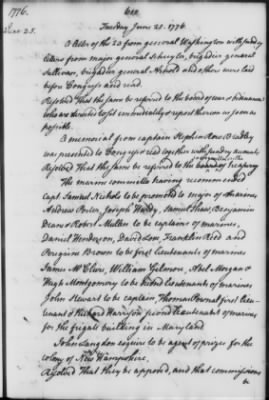 1776.
June 25.
Tuesday June 25. 1776
A letter of the 23 from general Washington with sundry
letters from major general Schuyler, brigadier general
Sullivan, brigadier general Arnold and others were laid
before Congress and read
Resolved That the same be referred to the board of war & ordnance
who are directed to sit continually & report thereon as soon as
possible.
A memorial from captain Stephen Row Bradley
was presented to Congress & read together with sundry accounts
Resolved That the same be referred to the board of treasury
The marine committee having recommended
Capt Samuel Nichols to be promoted to major of marines
Andrew Porter, Joseph Hardy, Samuel Shaw, Benjamin
Dean & Robert Mullen to be captains of marines,
Daniel Henderson, David Love, Franklin Reed and
Peregrine Brown to be first lieutenants of marines
James McClure, William Gilmore, Abel Morgan &
Hugh Montgomery to be second lieutenants of marines
John Stewart to be captain, Thomas Pownal first lieu-
tenant & Richard Harrison second lieutenant of marines
for the frigate building in Maryland
John Langdon esquire to be agent of prizes for the
colony of New Hampshire.
Resolved That they be approved, and that commissions